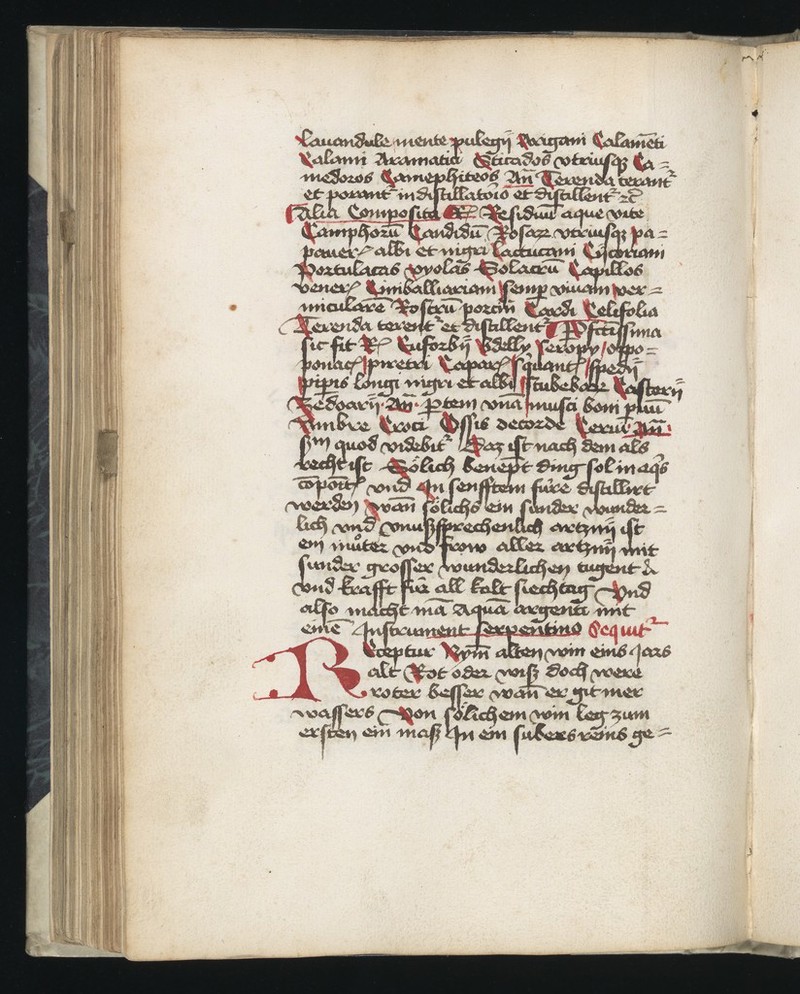 Lauandule mente pulegij Origani Calamēti
Calami Aramatici Sticados vtriusqꝫ Ca=
medoros Camephiteos Añ Terenda terant᷑
et porant᷑ in distillatoĩo et distillent᷑ ⁊c̄
Alia Composita ℞ Residiuū aque vite
Camphorū Candidū Rosaꝝ vtriusqꝫ pa=
pauer albi et nigri Lactucam Cicoriam
Portulacas vyolas Solacrū Capillos
vener Cimballiariam semp vivam ver=
micularē Rostrū porcin Cardi Celifolia
Terenda terent᷑ et distillent᷑
sic fit ℞ Euforbij Bdelly Seropy / oppo=
ponac / piretri Capar squant /
pipis longi nigri et albi / Cubebaꝝ Castorij
Zedoarij Añ ptem vnā musci boni pꝫ
Ambre Croci Ossis decorde Cerui Añ
sꝫm quod videbit᷑ Daz ist nach dem als
recht ist Sölich benept ding sol in aq̄s
cōpoit᷑ vnd In senfftem füre distillirt
werden wān sölichs ein sunder wunder=
lich vnd vnußsprechenlich artznij ist
ein můter vnd frow aller artznij mit
sunder grosser wunderlichen tugent
vnd krafft für all kalt siechtag Vnd
also macht mā Aquā argenti mit
einē Instrument serpentino Sequit᷑
Receptur Nym alten win eins Jars
alt Rot oder wiß doch were
roter besser wān er git mer
wassers Von sölichem win leg zum
ersten ein maß In ein subers reins ge=